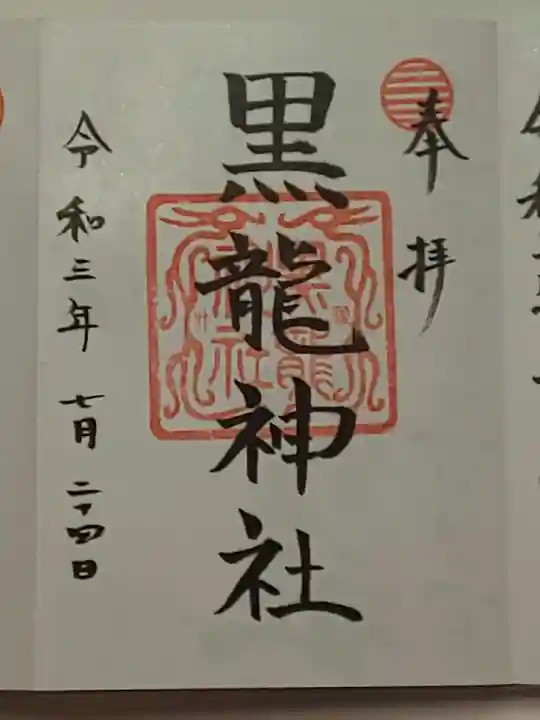 奉拝
黒龍神社
令和三年 七月 二十四日